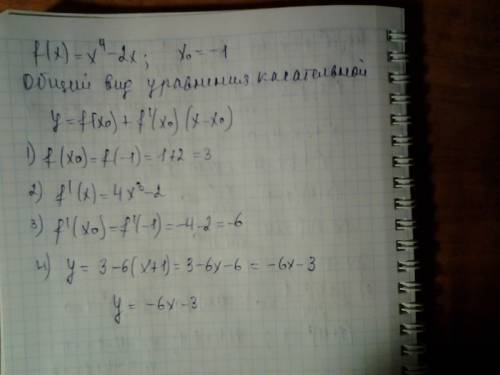 f(x) = x⁴ - 2x; x₀ = -1
Общий вид уравнения касательной
y = f(x₀) + f'(x₀) (x - x₀)
1) f(x₀) = f(-1) = 1+2 = 3
2) f'(x) = 4x³ - 2
3) f'(x₀) = f'(-1) = -4-2 = -6
4) y = 3 - 6(x+1) = 3 - 6x - 6 = -6x - 3
y = -6x - 3